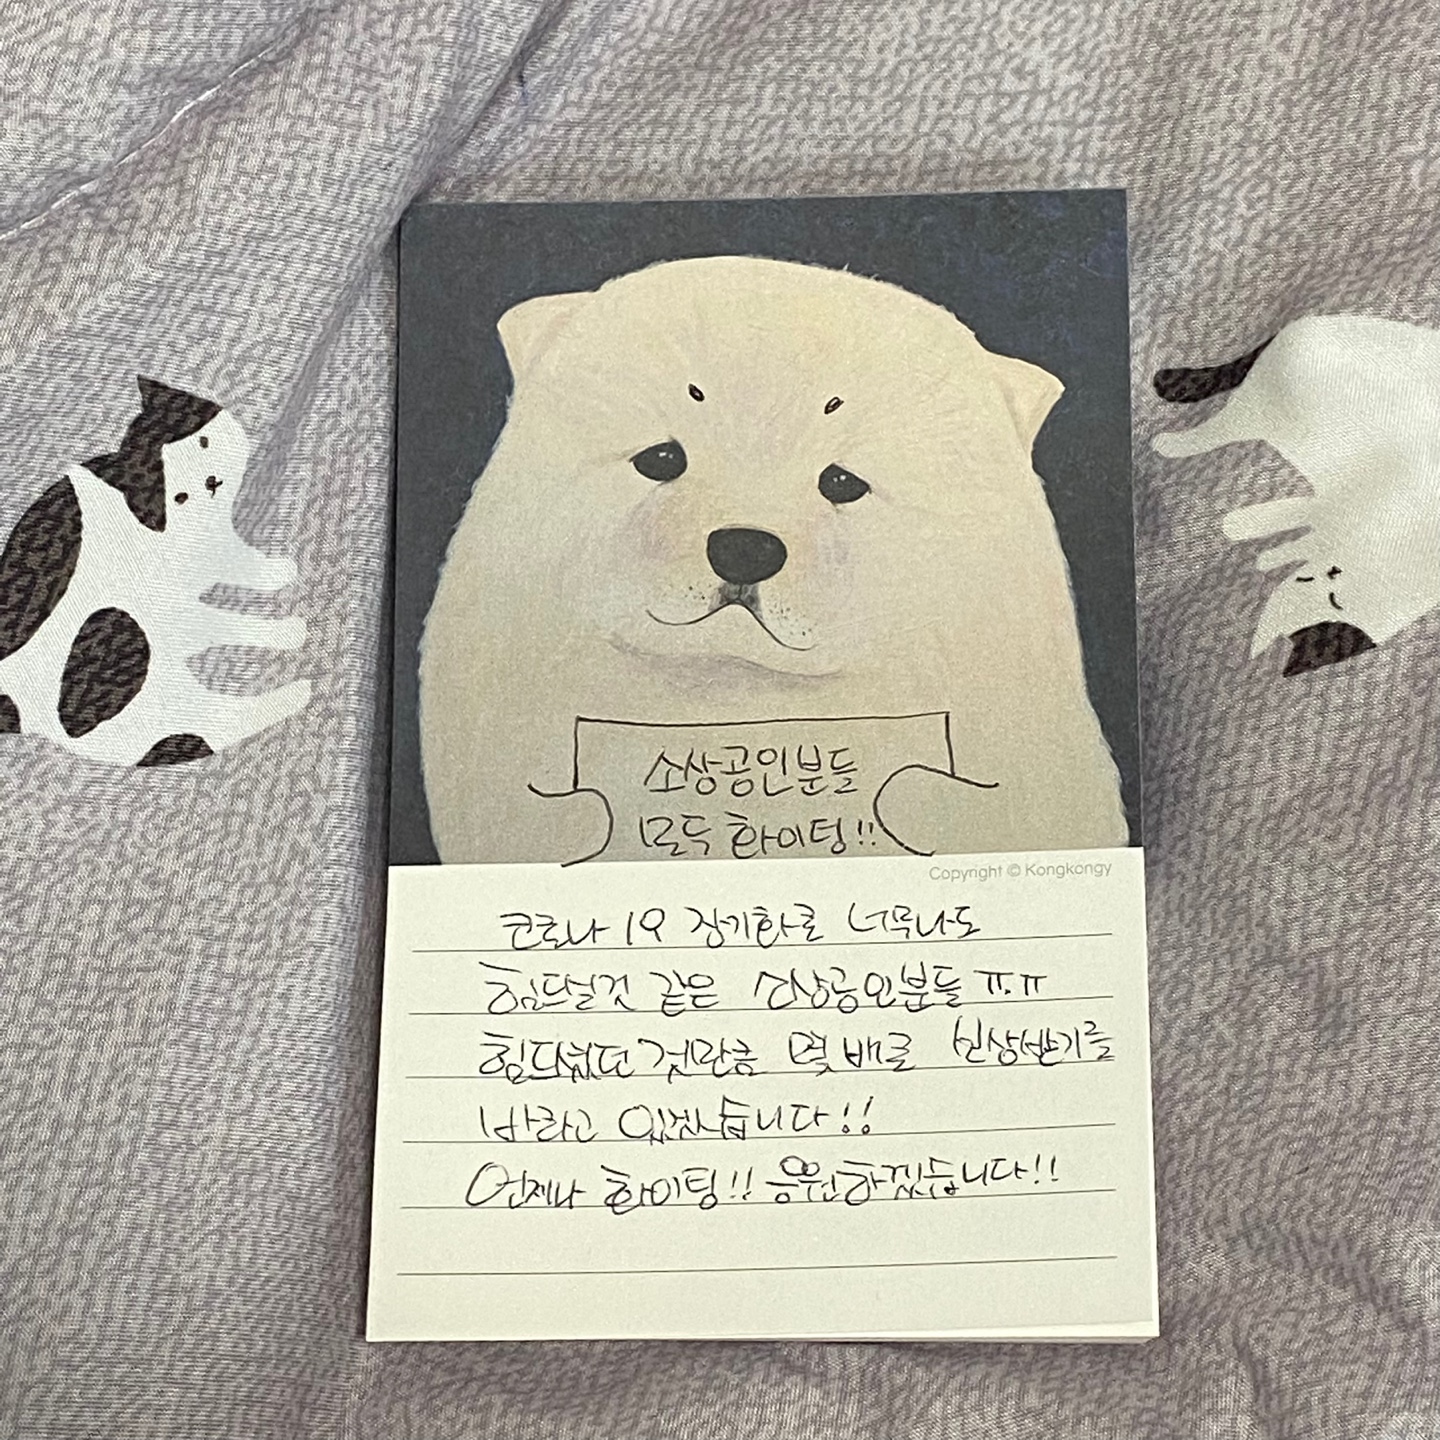 소상공인분들
모두 화이팅!!
Copyright © Kongkongy
코로나 19 장기화로 너무나도
힘드실것 같은 소상공인분들 ㅠ.ㅠ
힘드셨던 것만큼 몇 배로 보상받기를
바라고 있겠습니다!!
언제나 화이팅!! 응원하겠습니다!!